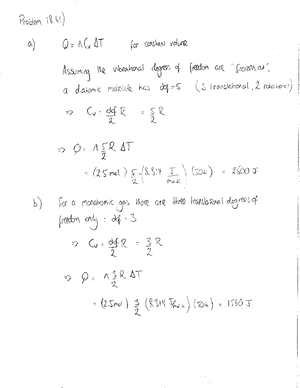 Problem 18.41)
a) Q = nCv ΔT for constant volume
Assuming the vibrational degrees of freedom are "frozen out",
a diatomic molecule has dof = 5 (3 translational, 2 rotational)
⇒ Cv = dof/2 R = 5/2 R
⇒ Q = n 5/2 R ΔT
= (2.5 mol) 5/2 (8.314 J/mol·K) (50K) = 2600 J
b) For a monatomic gas there are three translational degrees of
freedom only : dof = 3
⇒ Cv = dof/2 R = 3/2 R
⇒ Q = n 3/2 R ΔT
= (2.5 mol) 3/2 (8.314 J/mol·K) (50K) = 1560 J